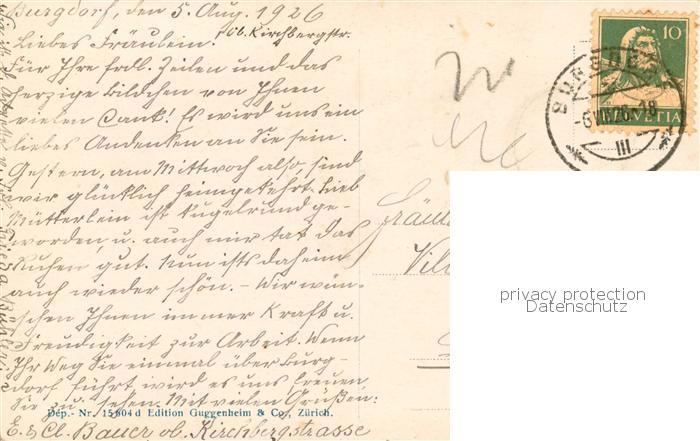 Burgdorf, den 5. Aug. 1926
ob. Kirchbergstr.
Liebes Fräulein!
Für Ihre frdl. Zeilen und das
herzige Bildchen von Ihnen
vielen Dank! Es wird uns ein
liebes Andenken an Sie sein.
Gestern, am Mittwoch also, sind
wir glücklich heimgekehrt. Lieb
Mütterlein ist kugelrund ge-
worden u. auch mir tat das
Ruhen gut. Nun ists daheim
auch wieder schön. – Wir wün-
schen Ihnen immer Kraft u.
Freudigkeit zur Arbeit. Wenn
Ihr Weg Sie einmal über Burg-
dorf führt wird es uns freuen,
Sie zu sehen. Mit vielen Grüßen:
Dép.- Nr. 15604 d Edition Guggenheim & Co., Zürich.
E. & Cl. Bauer ob. Kirchbergstrasse
10
HELVETIA
BURGDORF
-6.VIII.26.-18
III
Fräul
Vill
privacy protection
Datenschutz